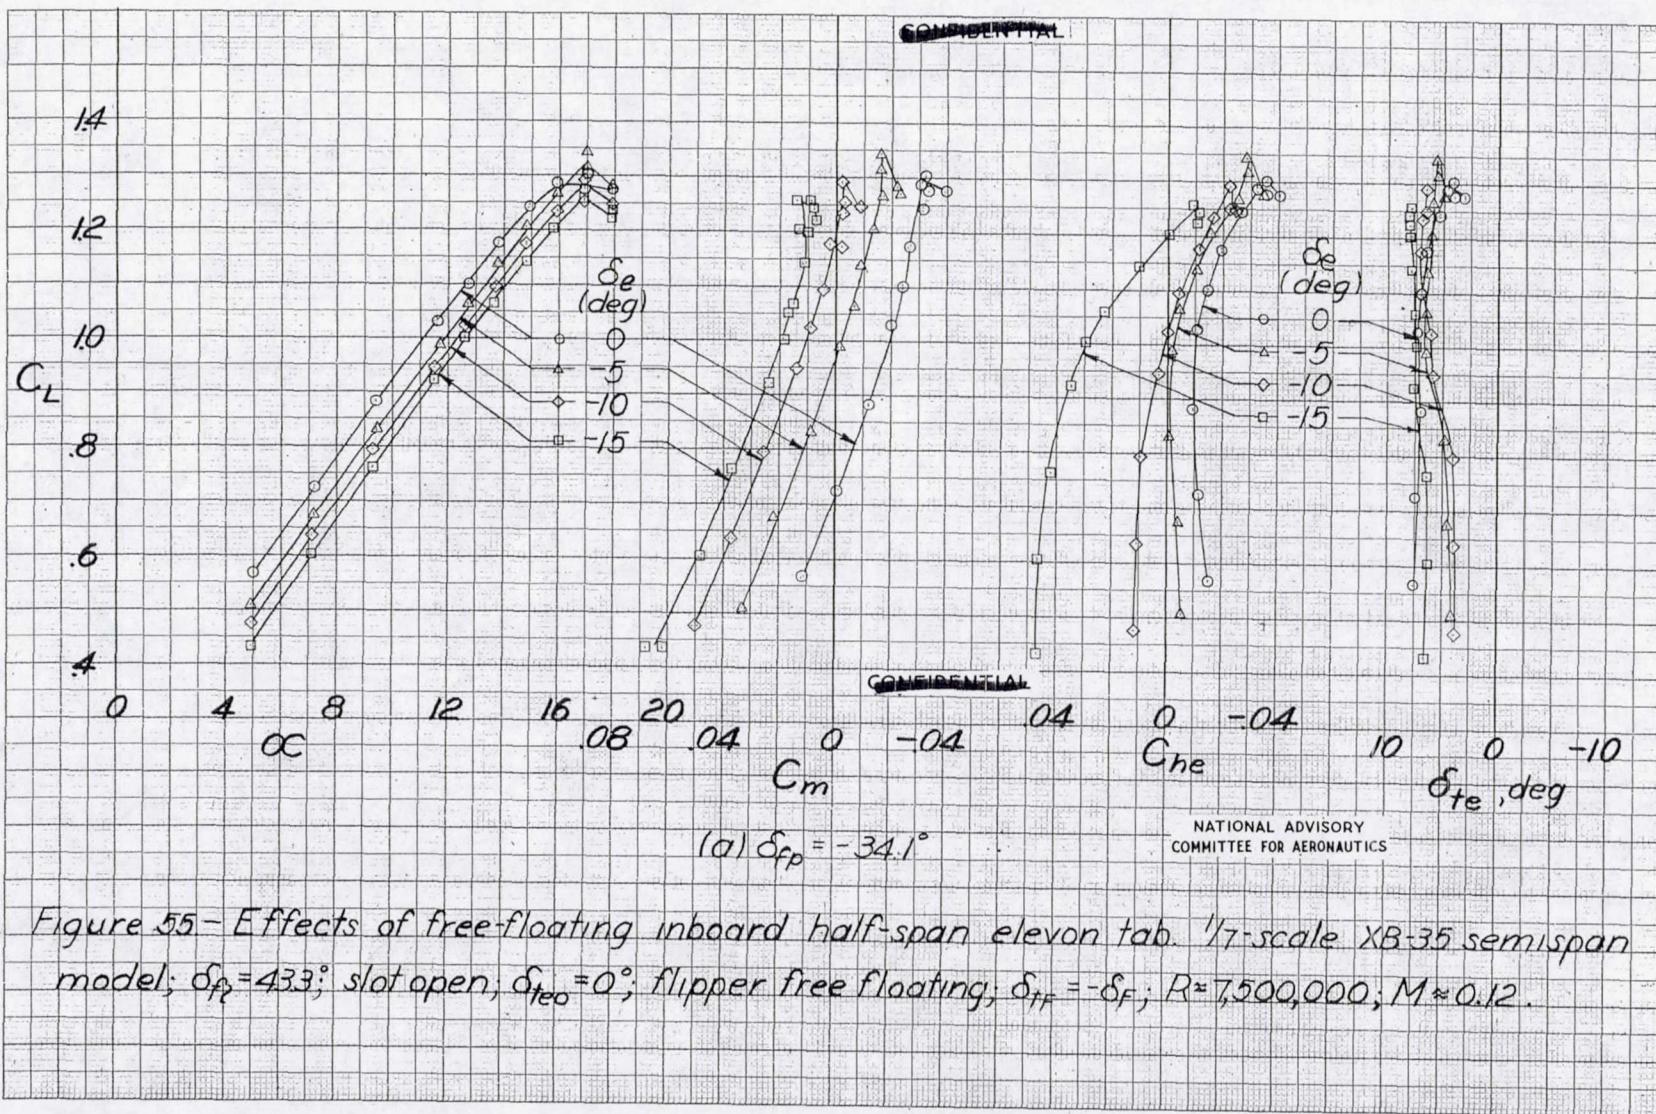 CONFIDENTIAL
1.4
1.2
1.0
.8
.6
.4
C_L
δe
(deg)
0
-5
-10
-15
δe
(deg)
0
-5
-10
-15
CONFIDENTIAL
0 4 8 12 16 20
α
.08 .04 0 -.04
Cm
.04 0 -.04
Che
10 0 -10
δte, deg
(a) δfp = -34.1°
NATIONAL ADVISORY
COMMITTEE FOR AERONAUTICS
Figure 55 - Effects of free-floating inboard half-span elevon tab. 1/7-scale XB-35 semispan
model; = 43.3°; slot open; δteo = 0°; flipper free floating; δtF = -δF; R ≈ 7,500,000; M ≈ 0.12.